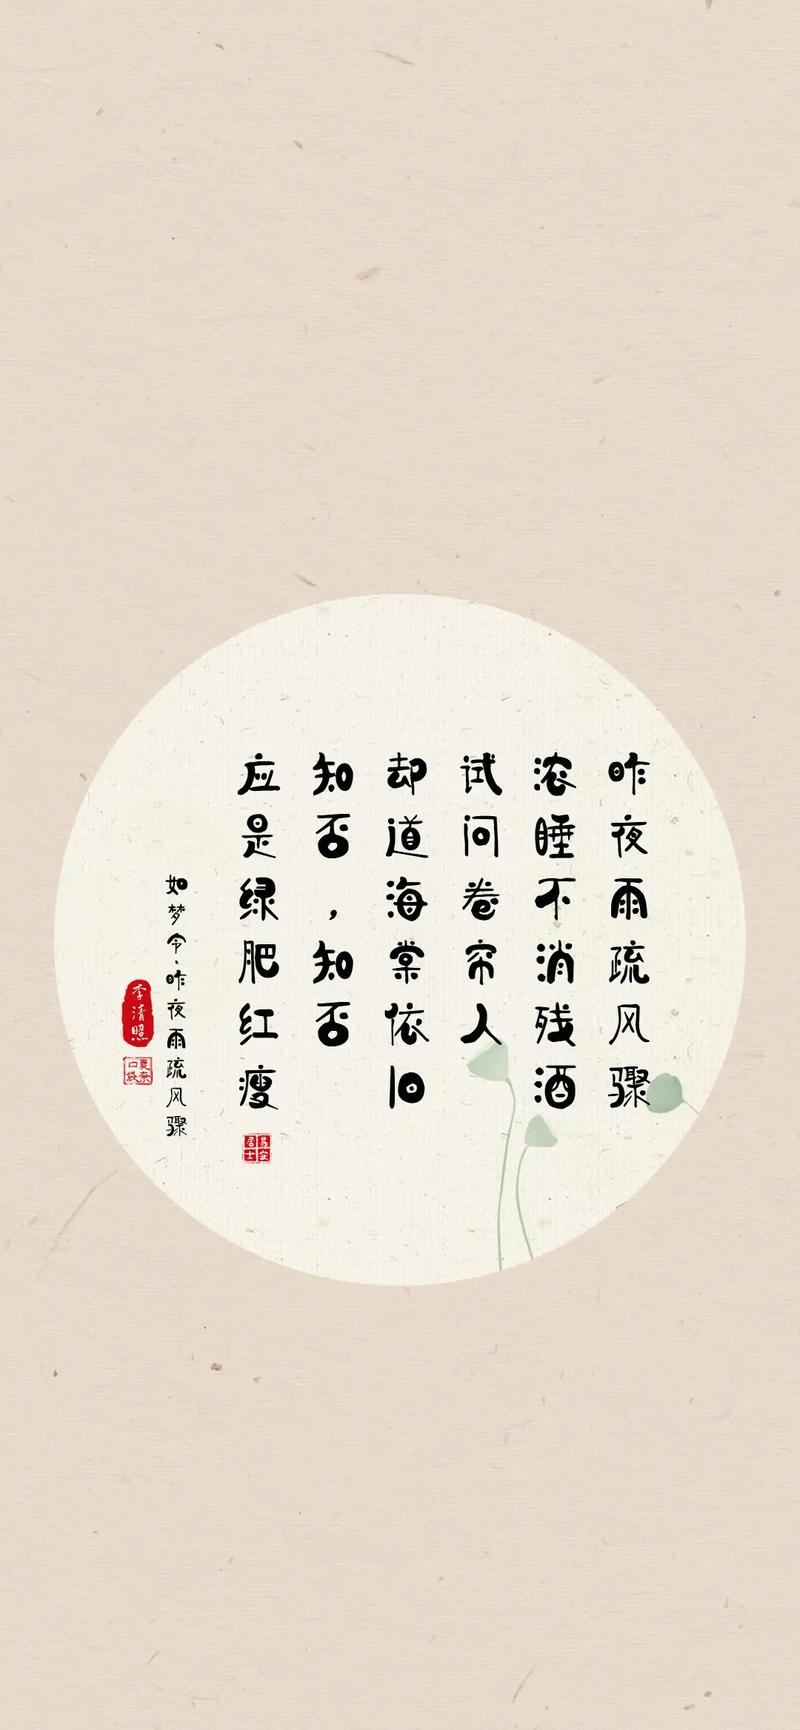 昨夜雨疏风骤
浓睡不消残酒
试问卷帘人
却道海棠依旧
知否，知否
应是绿肥红瘦
易安居士
如梦令·昨夜雨疏风骤
李清照